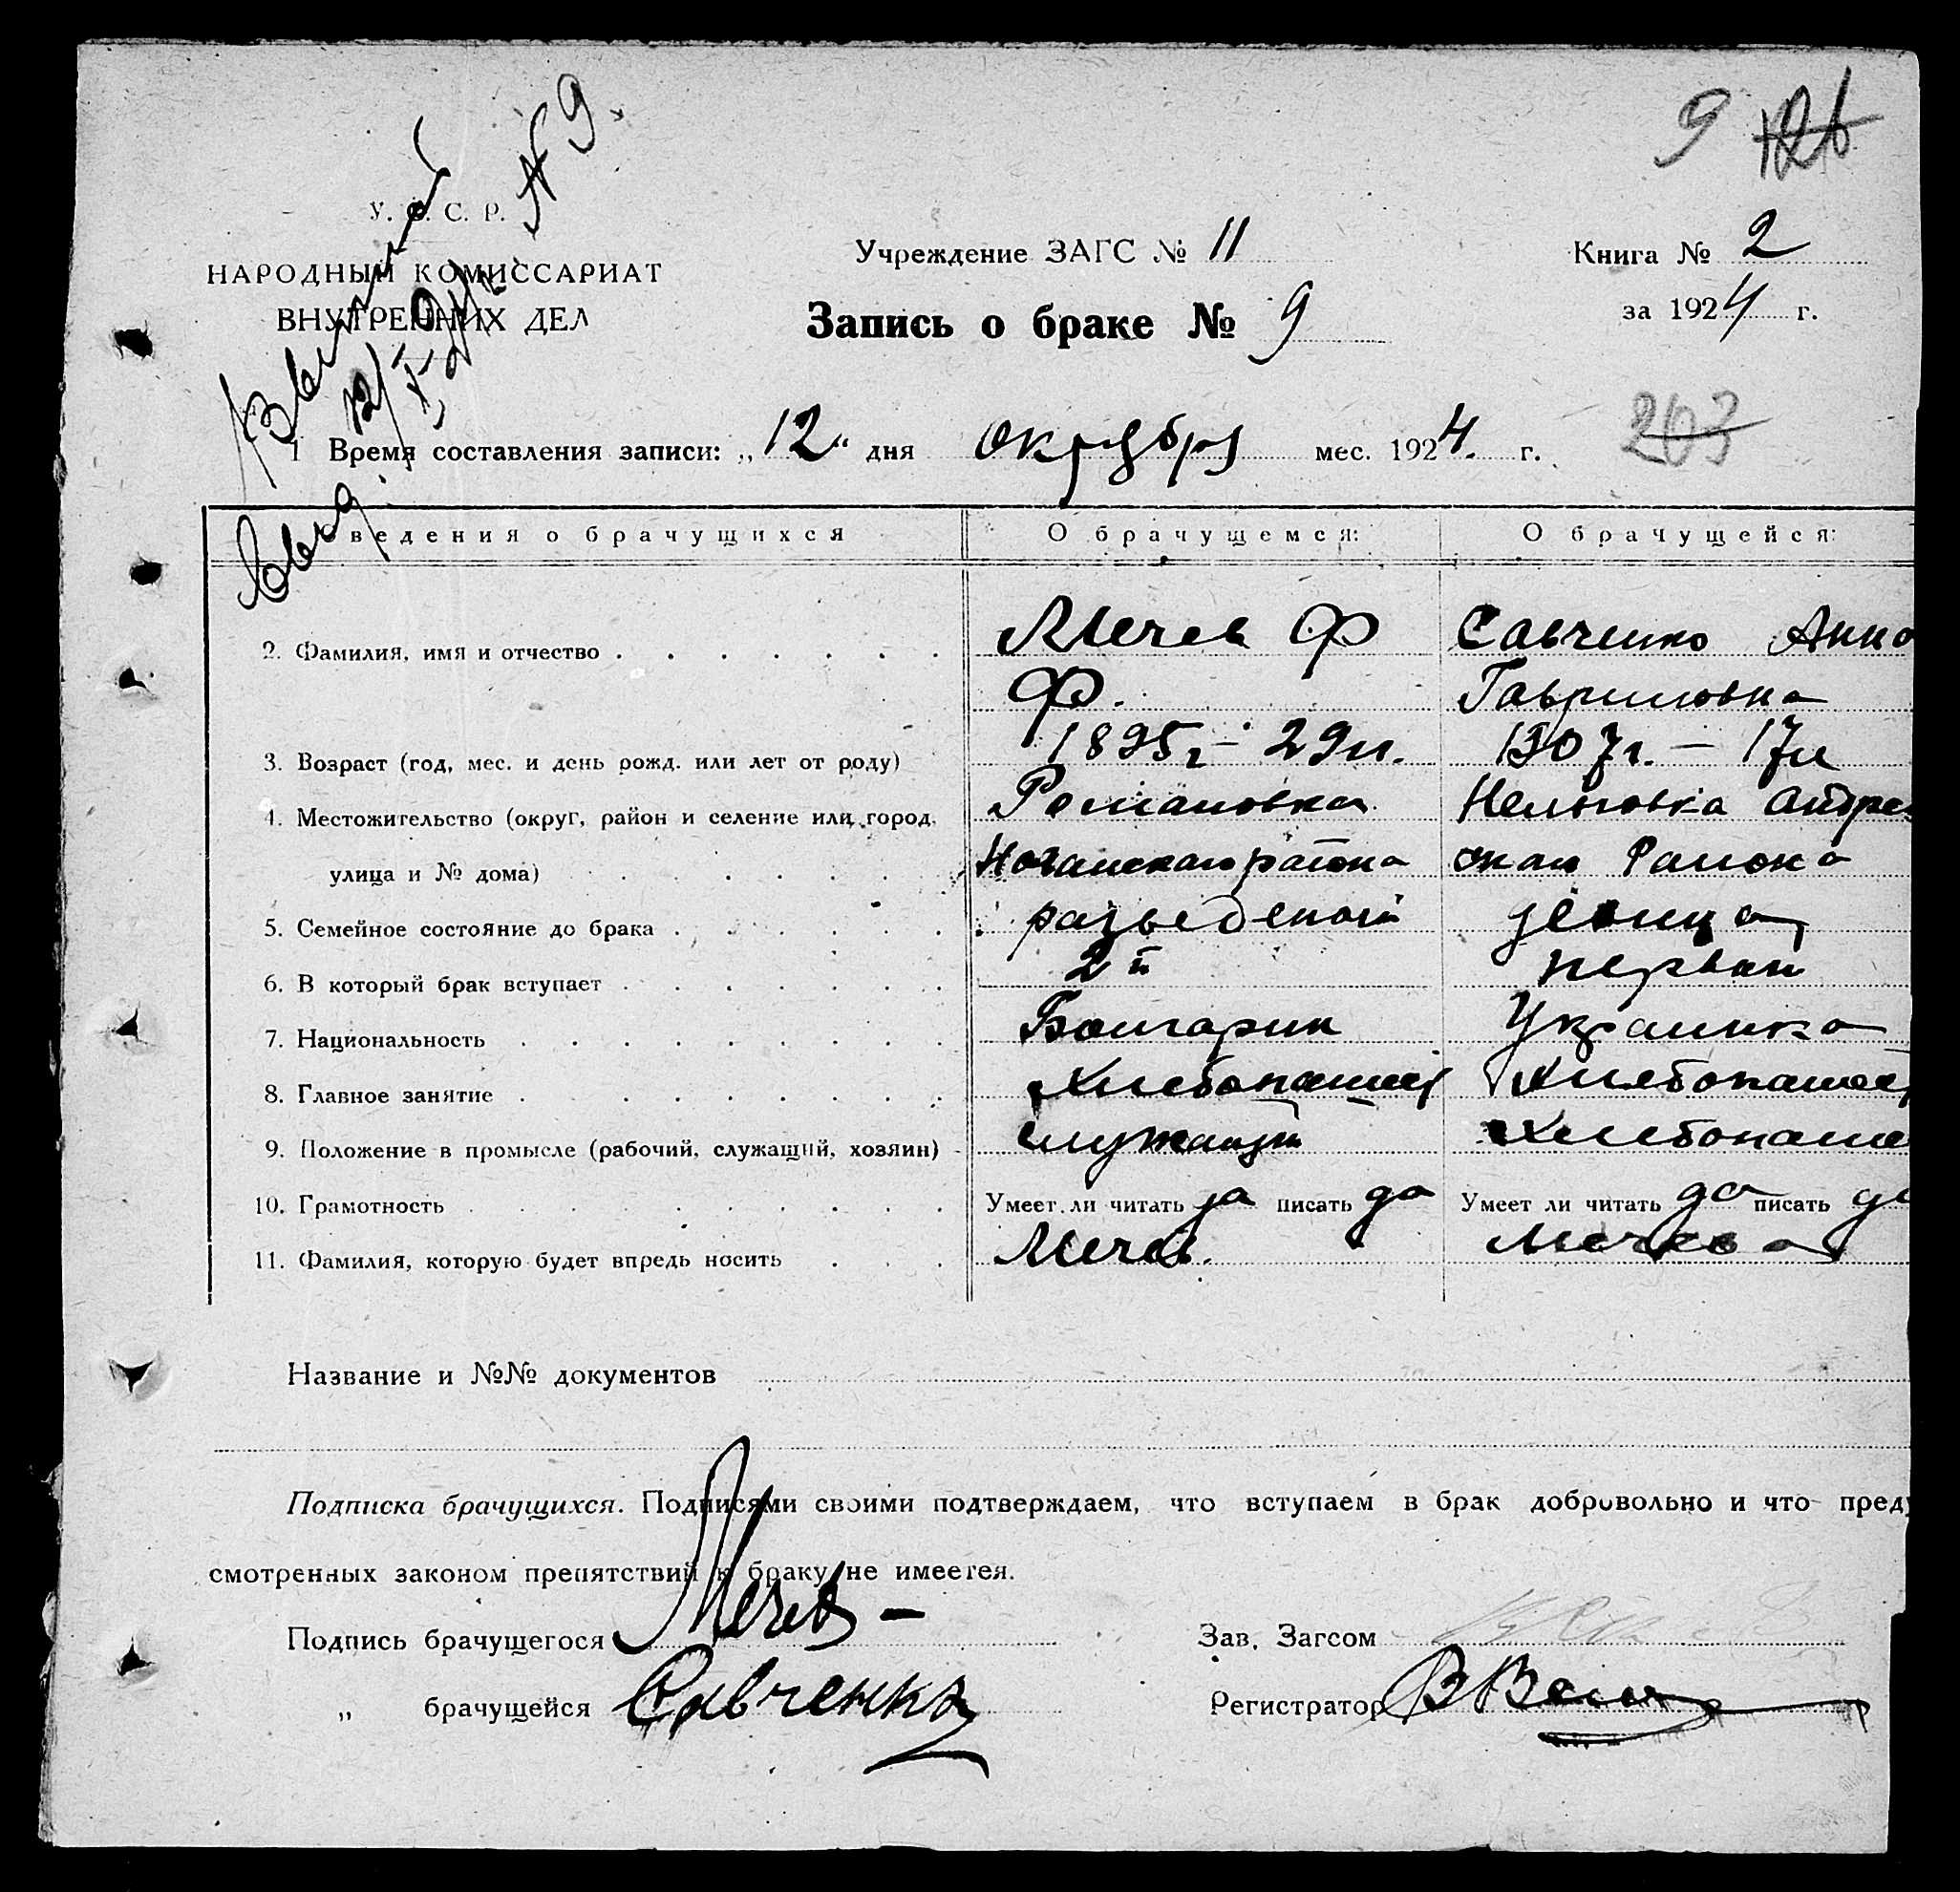 9 126
№ 9.
У. С. С. Р.
НАРОДНЫЙ КОМИССАРИАТ
ВНУТРЕННИХ ДЕЛ
Учреждение ЗАГС № 11
Запись о браке № 9
Книга № 2
за 1924 г.
203
1 Время составления записи: „12“ дня октября мес. 1924. г.
Сведения о брачущихся О брачущемся: О брачущейся:
2. Фамилия, имя и отчество Мечев Ф Савченко Анна
Ф. Гавриловна
3. Возраст (год, мес. и день рожд. или лет от роду) 1895г - 29л. 1907г. - 17л
4. Местожительство (округ, район и селение или город, Романовка Андре
улица и № дома) Ногайского района ского Района
5. Семейное состояние до брака разведеной девица
6. В который брак вступает 2й первый
7. Национальность Болгарин Украинка
8. Главное занятие Хлебопашец Хлебопашец
9. Положение в промысле (рабочий, служащий, хозяин) служащий Хлебопаше
10. Грамотность Умеет ли читать да писать да Умеет ли читать да писать да
11. Фамилия, которую будет впредь носить Мечев. Мечева
Название и №№ документов
Подписка брачущихся. Подписями своими подтверждаем, что вступаем в брак добровольно и что преду
смотренных законом препятствий к браку не имеется.
Подпись брачущегося Мечев - Зав. Загсом
„ брачущейся Савченко Регистратор